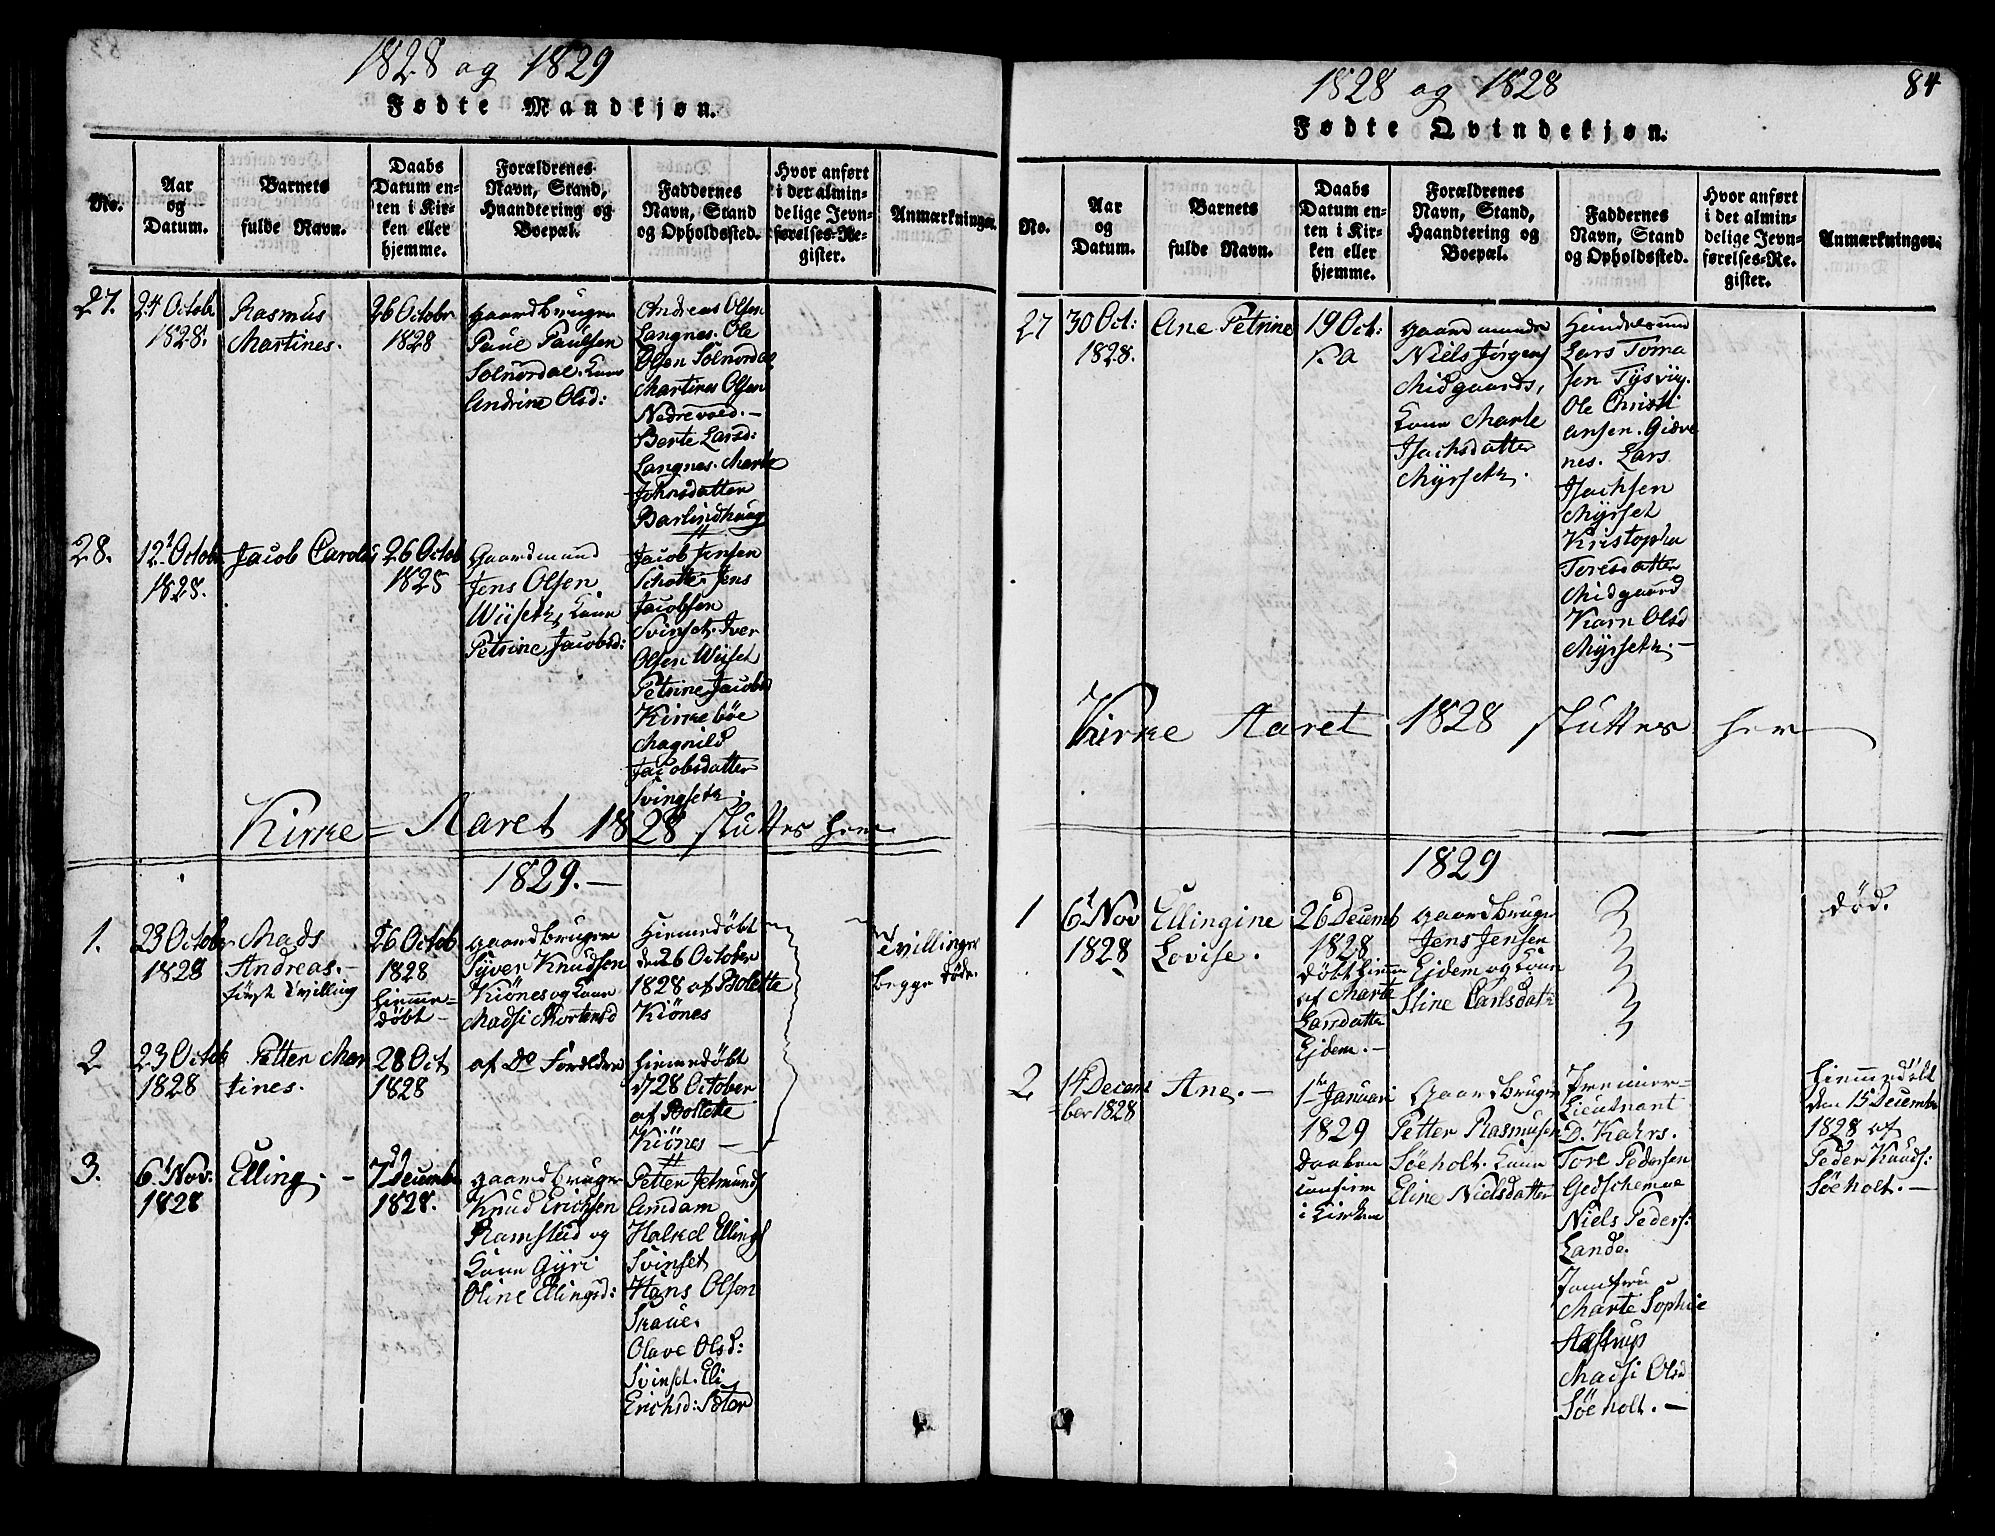 1828 og 1829
Fødte Mandkjøn.
No.
Aar
og
Datum.
Barnets
fulde Navn.
Daabs
Datum en-
ten i Kir-
ken eller
hjemme.
Forældrenes
Navn, Stand,
Haandtering og
Boepæl.
Faddernes
Navn, Stand
og Opholdssted.
Hvor anført
i det almin-
delige Jevn-
førelses-Re-
gister.
Anmærkninger.
27.
24 Octobr
1828.
Rasmus
Martines.
26 Octobr
1828
Gaardbruger
Paul Paulsen
Solnørdal. Kone
Andrine Olsd:
Andreas Olsen
Langnes. Ole
Olsen Solnørdal
Martines Olsen
Nedrevold. -
Berte Larsd:
Langnes. Marte
Johnsdatter
Barlindhaug
28.
12 Octobr
1828.
Jacob Carolus
26 Octob
1828
Gaardmand
Jens Olsen
Wiiseth, Kone
Petrine Jacobsd:
Jacob Jensen
Schotte. Jens
Jacobsen
Svinset. Iver
Olsen Wiiset
Petrine Jacobsd
Kirkebøe
Magnild
Jacobsdatter
Svingseth.
Kirke-Aaret 1828 sluttes her
1829. -
1.
23 Octobr
1828
Mads
Andreas. -
første Tvilling
26 Octob
1828
hieme-
døbt -
Gaardbruger
Syver Knudsen
Kiønes og Kone
Madsi Mortensd
Hiemedøbt
den 26 October
1828 af Bolette
Kiönes
Tvillinger
begge døde.
2
23 Octob
1828
Petter Mar
tines.
28 Oct
1828
af Do Foreldre
hiemedøbt
d 28 October
af Bollette
Kiönes -
3.
6 Nov:
1828
Elling. -
7 Decembr
1828.
Gaardbruger
Knud Erichsen
Ramstad og
Kone Gyri
Oline Ellingsd:
Petter Jetmunds
Amdam
Halsed Ellings
Svinset
Hans Olsen
Skaue.
Olave Olsd:
Svinset. Eli
Erichsd: Sæter
1828 og 1828
84
Fødte Qvindekjøn.
No.
Aar
og
Datum.
Barnets
fulde Navn.
Daabs
Datum en-
ten i Kir-
ken eller
hjemme.
Forældrenes
Navn, Stand,
Haandtering og
Boepæl.
Faddernes
Navn, Stand
og Opholdssted.
Hvor anført
i det almin-
delige Jevn-
førelses-Re-
gister.
Anmærkninger.
27
30 Oct:
1828.
Ane Petrine
19 Oct:
Gaardmand
Niels Jørgens
Midgaards,
Kone Marte
Isachsdatter
Myrseth.
Lars Toma
sen Tysvig.
Ole Christi
ansen. Giære
nes. Lars
Isachsen
Myrset
Kristopha
Toresdatter
Midgaard
Karn Olsd
Myrseth. -
Kirke Aaret 1828 sluttes her
1829
1
6 Nov
1828
Ellingine
Lovise.
26 Decemb
1828
døbt hiemme
af Marte
Larsdatter
Ejdem. -
Gaardbruger
Jens Jensen
Ejdem og Kone
Stine Carlsdatr
død.
2
14 Decem
ber 1828
Ane. -
1 Januari
1829
Daaben
confirm
i Kirken
Gaardbruger
Petter Rasmusen
Søeholt. Kone
Eline Nielsdatter
Premier-
Lieutnant
D. Kahrs.
Tore Pedersen
Niels Peders:
Lande.
Jomfru
Marte Sophie
Aastrup
Madsi Olsd
Søeholt. -
hiemmedøbt
den 15 Decembr
1828 af
Peder Knuds:
Søeholt. -